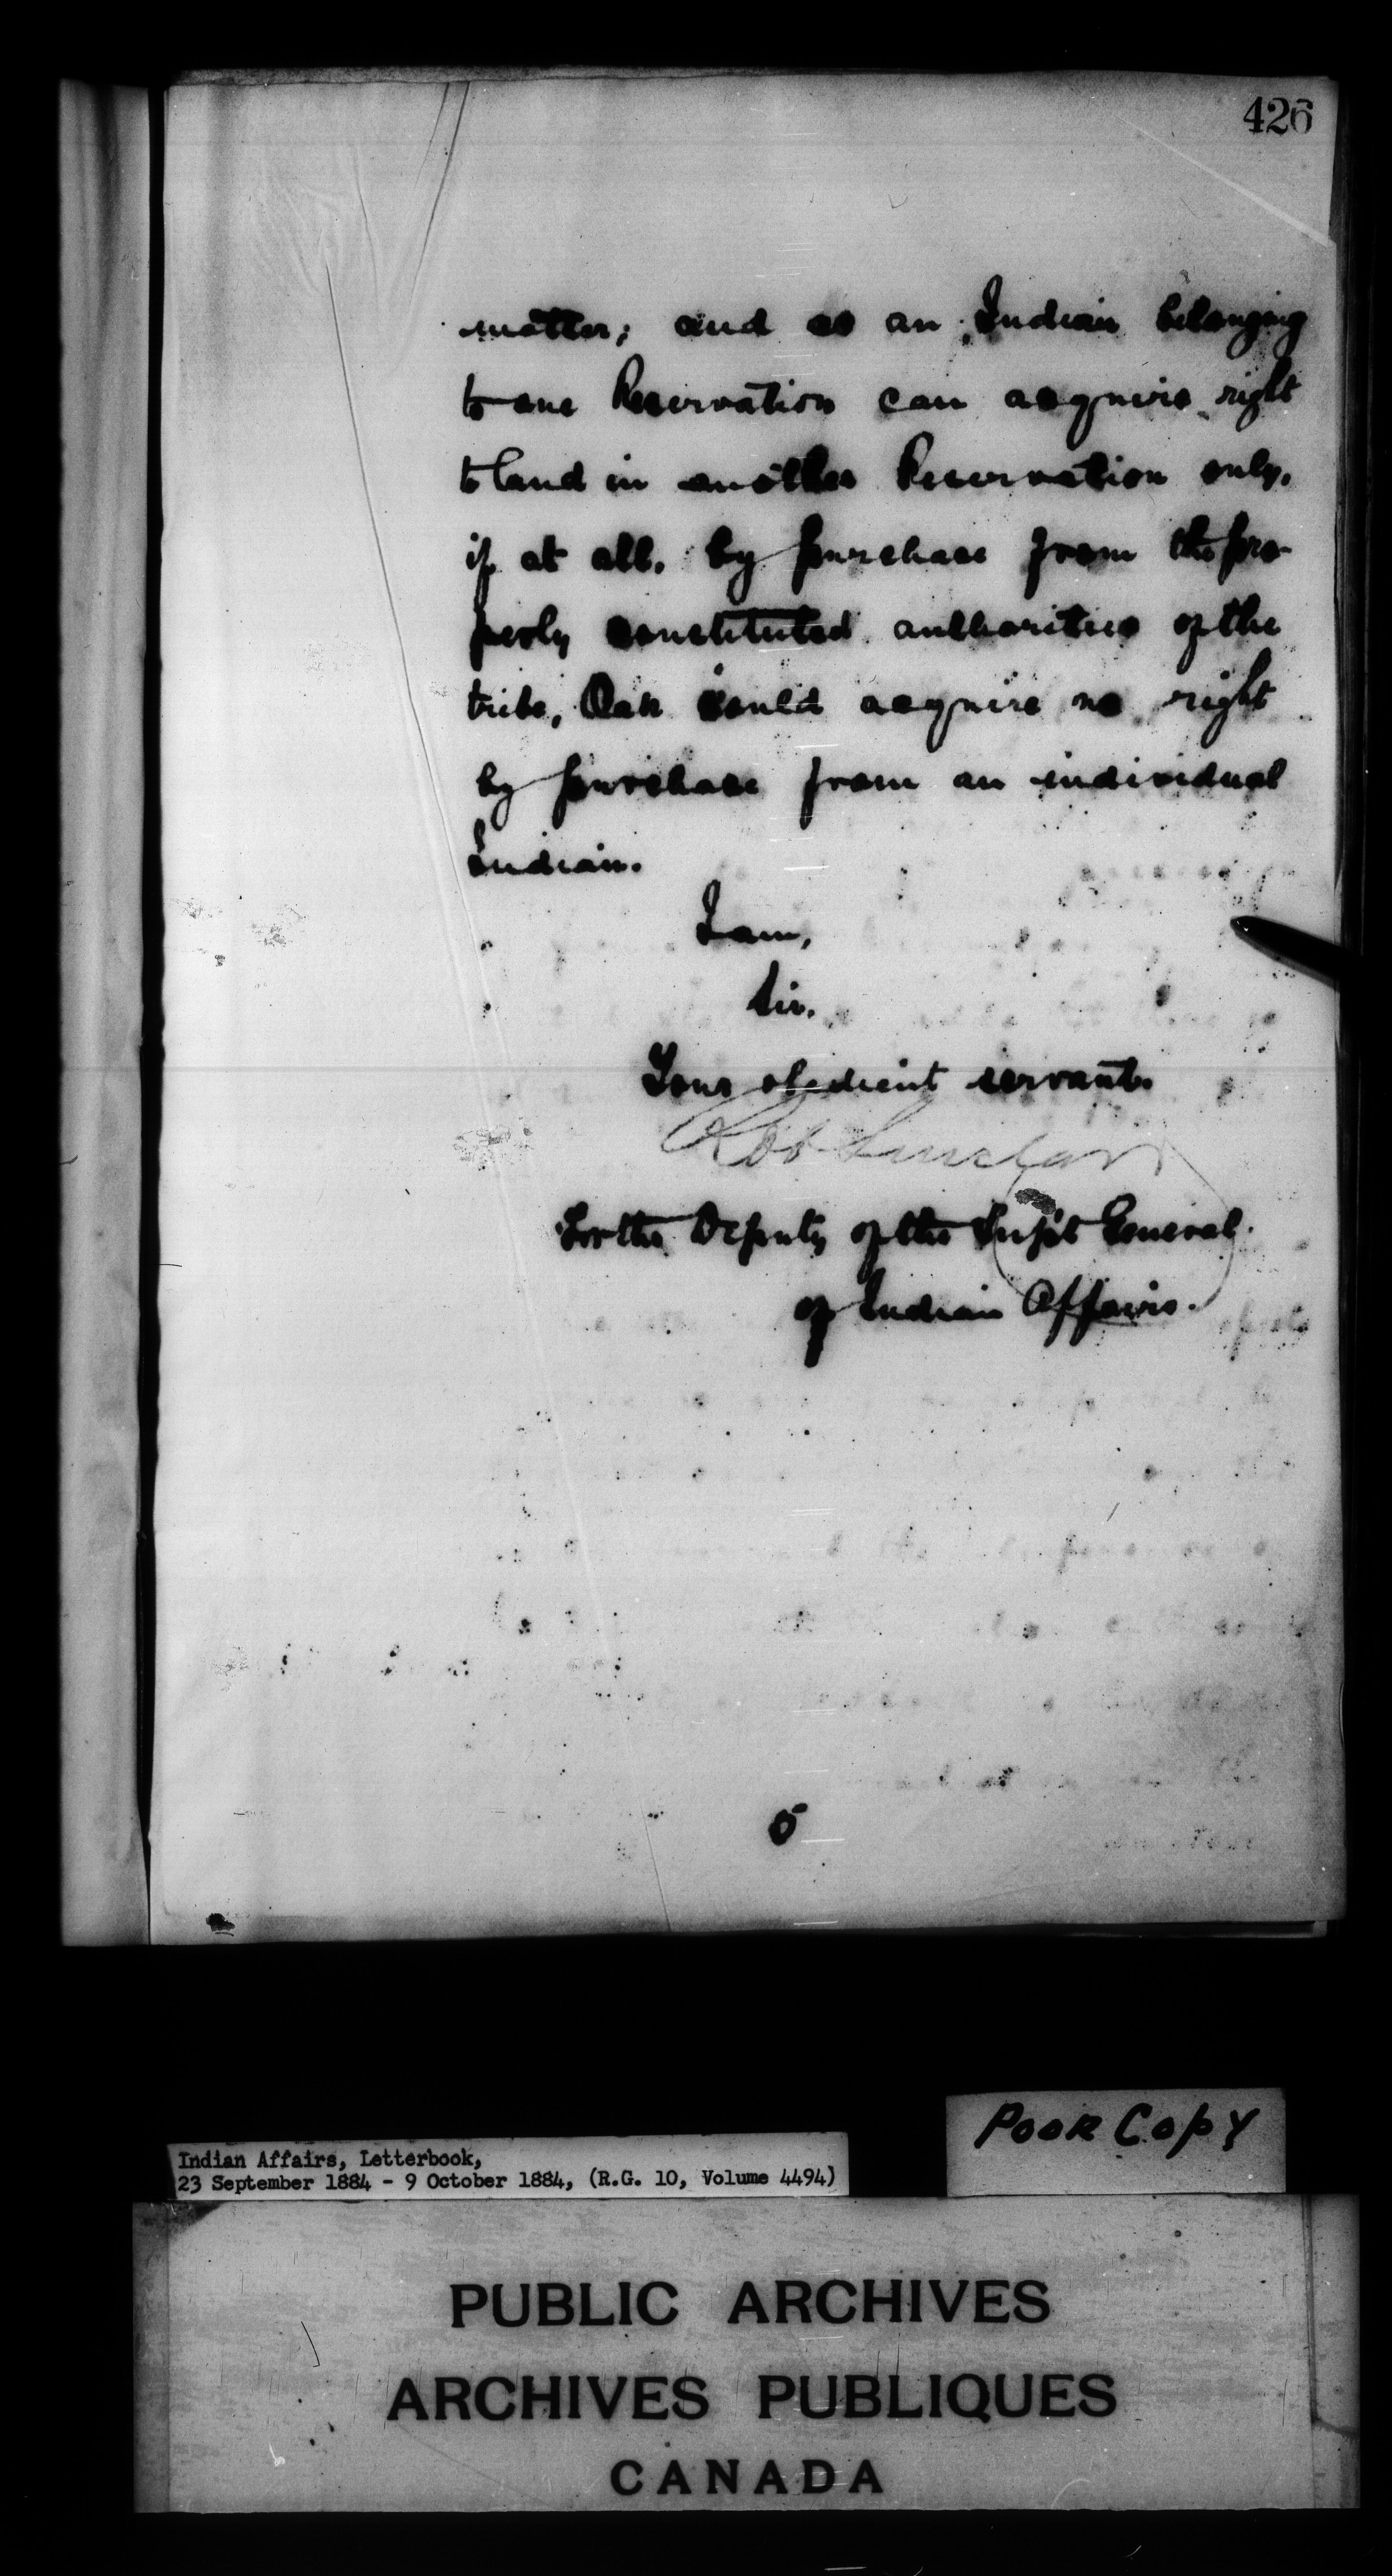 426
matter; and as an Indian belonging
to one Reservation can acquire right
to land in another Reservation only,
if at all, by purchase from the pro-
perly constituted authorities of the
tribe, Oak could acquire no right
by purchase from an individual
Indian.
I am,
Sir,
Your obedient servant.
Rob Sinclair
For the Deputy of the Supt General
of Indian Affairs.
5
Poor Copy
Indian Affairs, Letterbook,
23 September 1884 - 9 October 1884, (R.G. 10, Volume 4494)
PUBLIC ARCHIVES
ARCHIVES PUBLIQUES
CANADA